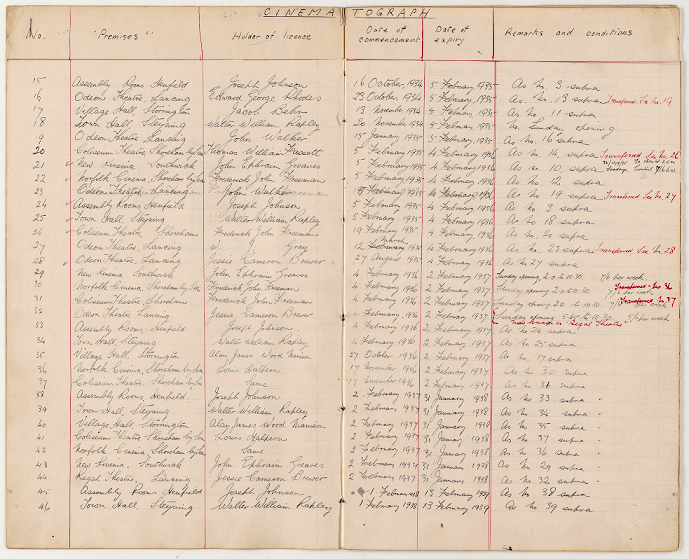 CINEMATOGRAPH
No. "Premises" Holder of licence Date of commencement Date of expiry Remarks and conditions
15 Assembly Rooms Henfield Joseph Johnson 16 October, 1934 5 February, 1935 As No. 3 supra
16 Odeon Theatre, Lancing Edward George Rhodes 23 October, 1934 5 February, 1935 As No. 13 supra Transferred. See No. 19
17 Village Hall, Storrington Jacob 13 November 1934 5 February, 1935 As No. 11 supra
18 Town Hall, Steyning Walter William Rapley 20 November 1934 5 February, 1935 No Sunday opening
19 Odeon Theatre, Lancing John Walker 15 January 1935 5 February, 1935 As No. 16 supra
20 Coliseum Theatre, Shoreham by Sea Thomas William 5 February 1935 4 February 1936 As No. 14, supra Transferred See No. 26
21 New Cinema, Southwick John Ephraim Greaves 5 February 1935 4 February 1936 As No. 10, supra
22 Norfolk Cinema, Shoreham by Sea Frederick John Freeman 5 February 1935 4 February 1936 As No. 12 supra
23 Odeon Theatre, Lancing John Walker February 1935 4 February 1936 As No. 19 supra Transferred See No. 27
24 Assembly Rooms Henfield Joseph Johnson 5 February 1935 4 February 1936 As No. 3 supra
25 Town Hall, Steyning Walter William Rapley 5 February 1935 4 February 1936 As No. 18 supra
26 Coliseum Theatre, Shoreham Frederick John Freeman 19 February 1935 4 February 1936 As No. 20 supra
27 Odeon Theatre, Lancing W. Gray 12 March 1935 4 February 1936 As No. 23 supra Transferred See No. 28
28 Odeon Theatre, Lancing Jessie Cameron Brewer 27 August 1935 4 February 1936 As No. 27 supra
29 New Cinema Southwick John Ephraim Greaves 4 February 1936 2 February 1937 Sunday opening, 2.0 to 10.30. 7/6 per week.
30 Norfolk Cinema, Shoreham by Sea Frederick John Freeman 4 February 1936 2 February 1937 Sunday opening 2.0 to 10.30 per week Transferred - No 36
31 Coliseum Theatre Shoreham Frederick John Freeman 4 February 1936 2 February 1937 Sunday opening 2.0 to 10.30. per week Transferred No 37
32 Odeon Theatre Lancing Jessie Cameron Brewer 4 February 1936 2 February 1937 Sunday opening 5.45 to 10.30. 5/- per week
"Now known as Regal Theatre"
33 Assembly Rooms, Henfield Joseph Johnson 4 February 1936 2 February 1937 As No 24 supra
34 Town Hall, Steyning Walter William Rapley 4 February 1936 2 February 1937 As No 25 supra
35 Village Hall, Storrington Alan James Wood Manson 27 October 1936 2 February 1937 As No. 17 supra
36 Norfolk Cinema, Shoreham by Sea Louis Halpern 17 November 1936 2 February 1937 As No. 30 supra
37 Coliseum Theatre, Shoreham by Sea Same 17 November 1936 2 February 1937 As No. 31 supra
38 Assembly Rooms, Henfield. Joseph Johnson 2 February 1937 31 January 1938 As No. 33 supra
39 Town Hall, Steyning Walter William Rapley 2 February 1937 31 January 1938 As No. 34 supra
40 Village Hall, Storrington Alan James Wood Manson 2 February 1937 31 January 1938 As No. 35 supra
41 Coliseum Theatre Shoreham by Sea Louis Halpern 2 February 1937 31 January 1938 As No. 37 supra
42 Norfolk Cinema Shoreham by Sea Same 2 February 1937 31 January 1938 As No. 36 supra
43 New Cinema, Southwick John Ephraim Greaves 2 February 1937 31 January 1938 As No 29 supra
44 Regal Theatre, Lancing Jessie Cameron Brewer 2 February 1937 31 January 1938 As No. 32 supra
45 Assembly Rooms Henfield Joseph Johnson 1 February 1938 13 February 1939 As No. 38 supra
46 Town Hall, Steyning Walter William Rapley 1 February 1938 13 February 1939 As No 39 supra